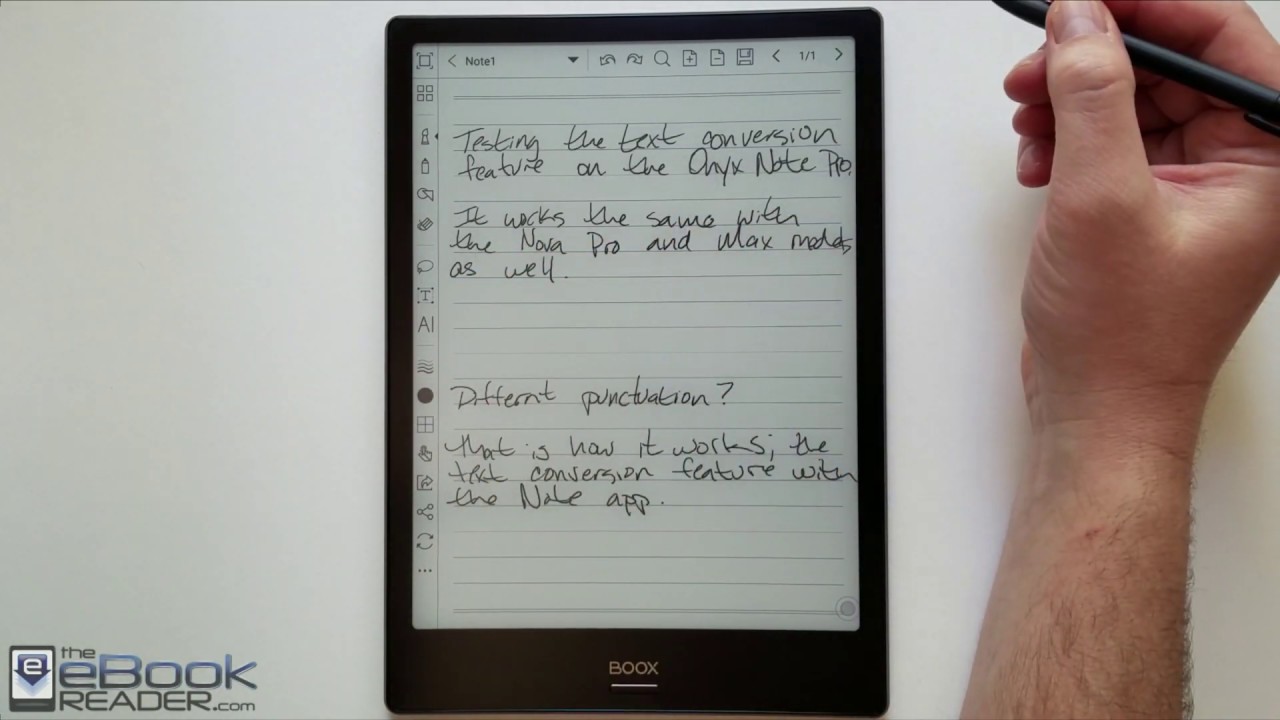 Note1
1/1
Testing the text conversion
feature on the Onyx Note Pro.
It works the same with
the Nova Pro and Max models
as well.
Differnt punctuation?
that is how it works; the
text conversion feature with
the Note app.
BOOX
the
eBook
READER.com